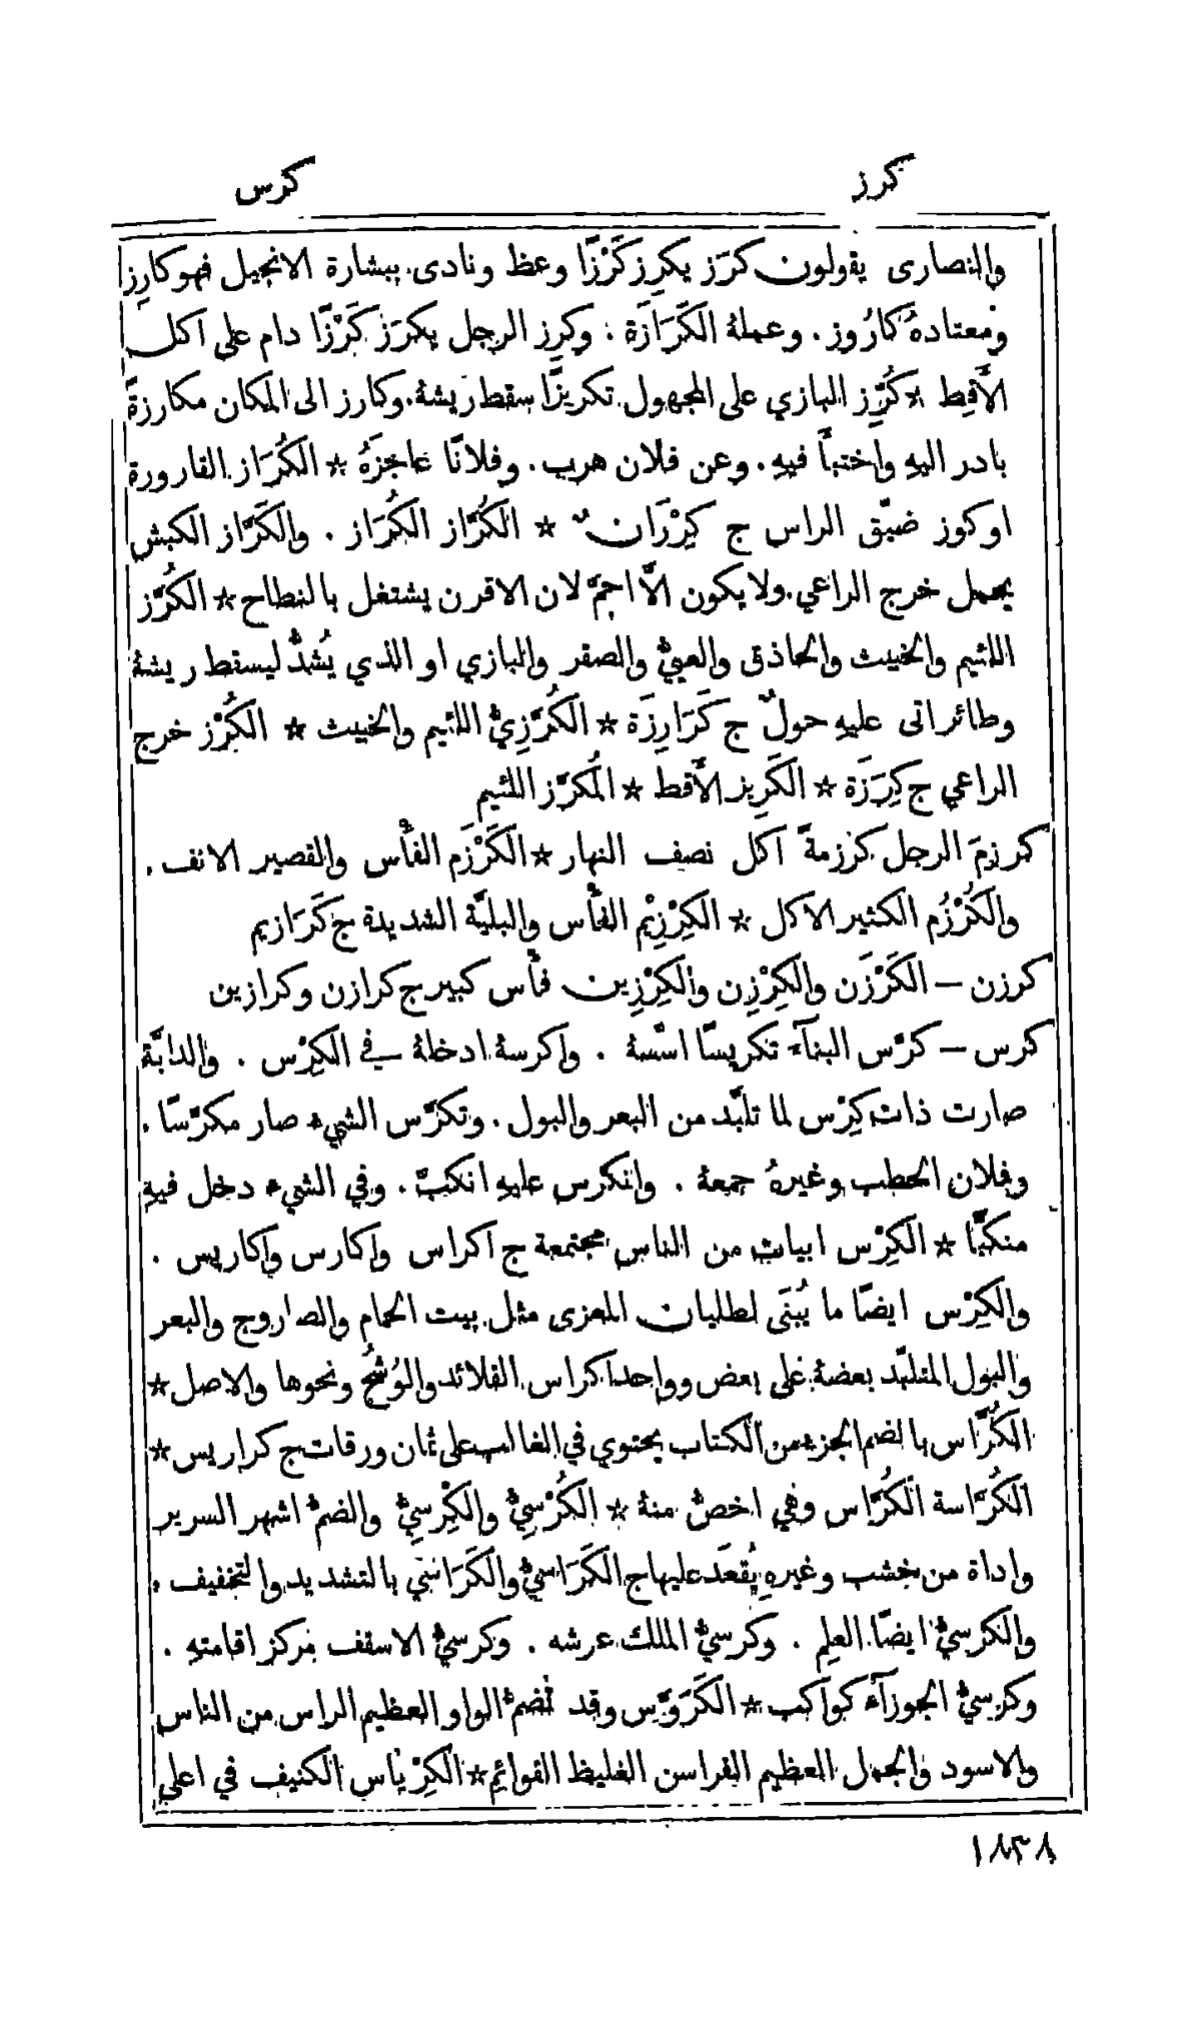 كرز
كرس
والنصارى يقولون كرَز يكرِز كَرْزًا وعظ ونادى ببشارة الانجيل فهو كارِز
ومعتادهُ كارُوز. وعملهُ الكَرَازَة. وكرِز الرجل يكرَز كَرْزًا دام على اكل
الأَقِط * كُرِّز البازي على المجهول تكريزًا سقط ريشهُ. وكارز الى المكان مكارزةً
بادر اليهِ واختبأَ فيهِ. وعن فلان هرب. وفلانًا عاجزَهُ * الكُرَاز القارورة
او كوز ضيّق الراس ج كِرْزَان * الكُرَّاز الكُرَاز. والكَرَّاز الكبش
يحمل خرج الراعي. ولا يكون الَّا اجمّ لان الاقرن يشتغل بالنطاح * الكُرَّز
اللئيم والخبيث والحاذق والعييّ والصقر والبازي او الذي يُشدُّ ليسقط ريشهُ
وطائر اتى عليهِ حولٌ ج كَرَارِزَة * الكُرَّزِيُّ اللئيم والخبيث * الكُرْز خرج
الراعي ج كِرَزَة * الكَرِيز الأَقط * المُكرَّز اللئيم
كرزمَ الرجل كرزمةً اكل نصف النهار * الكَرْزَم الفأْس والقصير الانف.
والكُرْزُم الكثير الاكل * الكِرْزِيْم الفأْس والبليَّة الشديدة ج كَرَازيم
كرزن — الكَرْزَن والكِرْزِن والكِرْزِين فأْس كبير ج كرازن وكرازين
كرس — كرَّس البنآء تكريسًا اسَّسهُ. واكرسهُ ادخلهُ في الكِرْس. والدابَّة
صارت ذات كِرْس لما تلبَّد من البعر والبول. وتكرَّس الشيء صار مكرَّسًا.
وفلان الحطب وغيرهُ جمعهُ. وانكرس عليهِ انكبَّ. وفي الشيء دخل فيهِ
منكبًّا * الكِرْس ابيات من الناس مجتمعة ج اكراس واكارس واكاريس.
والكِرْس ايضًا ما يُبنَى لطليان المعزى مثل بيت الحمام والصاروج والبعر
والبول المتلبّد بعضهُ على بعض وواحد اكراس القلائد والوُشُح ونحوها والاصل *
الكُرَّاس بالضم الجزء من الكتاب يحتوي في الغالب على ثمان ورقات ج كراريس *
الكُرَّاسة الكُرَّاس وهي اخصُّ منهُ * الكُرْسِيُّ والكِرْسِيُّ والضمُّ اشهر السرير
واداة من خشب وغيرهِ يُقعَد عليها ج الكَرَاسيُّ والكَرَاسِي بالتشديد والتخفيف.
والكرسيُّ ايضًا العلم. وكرسيُّ الملك عرشه. وكرسيُّ الاسقف مركز اقامتهِ.
وكرسيُّ الجوزآء كواكب * الكَرَوَّس وقد تُضمُّ الواو العظيم الراس من الناس
والاسود والجمل العظيم الفراسن الغليظ القوائم * الكِرْيَاس الكنيف في اعلى
١٨٣٨